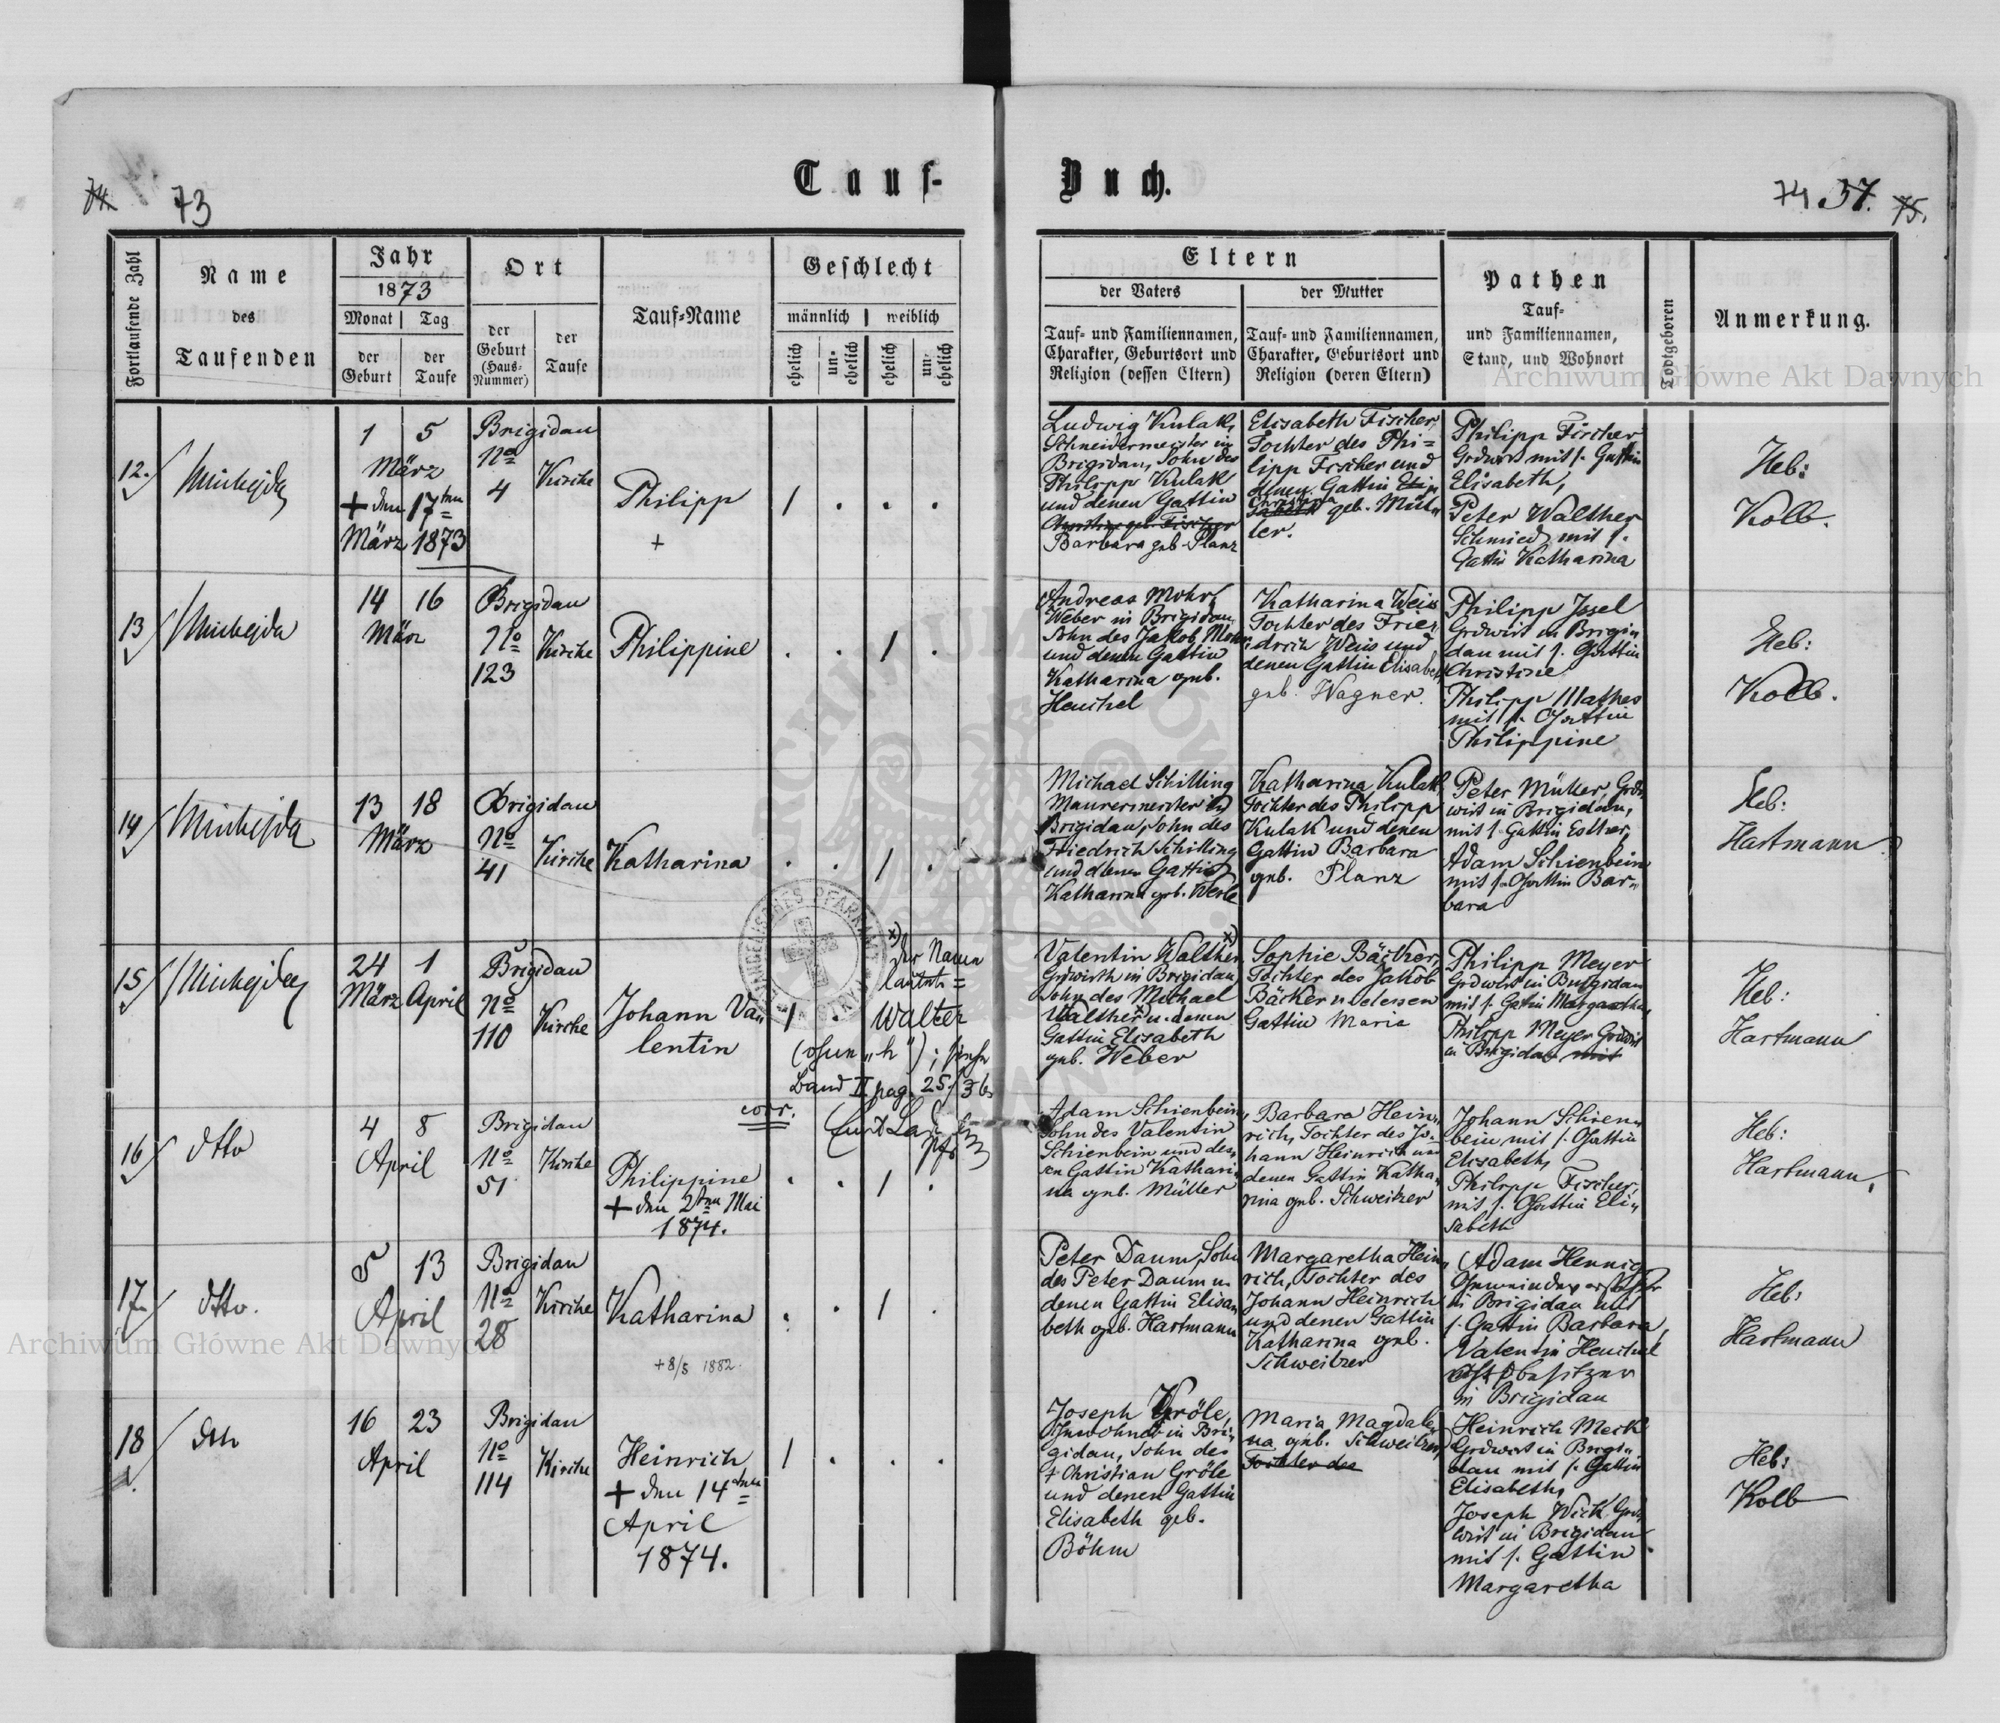 Tauf-
Buch.
74.
73
74
37.
75.
Fortlaufende Zahl
Name
des
Taufenden
Jahr
1873
Monat
Tag
der
Geburt
der
Taufe
Ort
der
Geburt
(Haus-
Nummer)
der
Taufe
Tauf-Name
Geschlecht
männlich
weiblich
ehelich
un-
ehelich
ehelich
un-
ehelich
Eltern
der Vaters
der Mutter
Tauf- und Familiennamen,
Charakter, Geburtsort und
Religion (dessen Eltern)
Tauf- und Familiennamen,
Charakter, Geburtsort und
Religion (deren Eltern)
Pathen
Tauf-
und Familiennamen,
Stand, und Wohnort
Todtgeboren
Anmerkung.
Archiwum Główne Akt Dawnych
12.
Michejda
1
5
März
+ den 17ten
März 1873
Brigidau
No
4
Kirche
Philipp
+
1
.
.
.
Ludwig Kulak,
Schneidermeister in
Brigidau, Sohn des
Philipp Kulak
und denen Gattin
Christine geb. Fischer
Barbara geb. Planz
Elisabeth Fischer,
Tochter des Phi=
lipp Fischer und
denen Gattin
Christina
geb. Mül„
ler.
Philipp Fischer
Grdwirt mit s. Gattin
Elisabeth,
Peter Walther
Schmied mit s.
Gattin Katharina
Heb:
Kolb.
13
Michejda
14
16
März
Brigidau
No
123
Kirche
Philippine
.
.
1
.
Andreas Mohr,
Weber in Brigidau,
Sohn des Jakob Mohr
und denen Gattin
Katharina geb.
Henschel
Katharina Weis
Tochter des Frie„
drich Weis und
denen Gattin Elisabeth
geb. Wagner.
Philipp Issel
Grdwirt in Brigi„
dau mit s. Gattin
Christine
Philipp Mathes
mit s. Gattin
Philippine
Heb:
Kolb.
14
Michejda
13
18
März
Brigidau
No
41
Kirche
Katharina
.
.
1
.
Michael Schilling
Maurermeister in
Brigidau, Sohn des
Friedrich Schilling
und denen Gattin
Katharina geb. Werle
Katharina Kulak
Tochter des Philipp
Kulak und denen
Gattin Barbara
geb. Planz
Peter Müller, Grd„
wirt in Brigidau,
mit s. Gattin Esther,
Adam Schienbein
mit s. Gattin Bar„
bara
Heb:
Hartmann
15
Michejda
24
1
März
April
Brigidau
No
110
Kirche
Johann Va„
lentin
1
.
x) Der Name
lautet =
Walter
(ohne „h"); siehe
Band II pag. 25/36
corr.
Valentin Walther x)
Grdwirth in Brigidau,
Sohn des Michael
Walther x u. denen
Gattin Elisabeth
geb. Weber
Sophie Bäcker,
Tochter des Jakob
Bäcker u. dessen
Gattin Maria
Philipp Meyer
Grdwirt in Brigidau
mit s. Gattin Margaretha,
Philipp Meyer Grdwirt
in Brigidau mit
Heb:
Hartmann
16
dtto
4
8
April
Brigidau
No
51
Kirche
Philippine
+ den 2ten Mai
1874.
.
.
1
.
Adam Schienbein,
Sohn des Valentin
Schienbein und des„
sen Gattin Kathari„
na geb. Müller
Barbara Hein„
rich, Tochter des Jo„
hann Heinrich und
denen Gattin Katha„
rina geb. Schweitzer
Johann Schien„
bein mit s. Gattin
Elisabeth,
Philipp Fischer
mit s. Gattin Eli„
sabeth
Heb:
Hartmann
17
dtto.
5
13
April
Brigidau
No
28
Kirche
Katharina
+ 8/5 1882.
.
.
1
.
Peter Daum, Sohn
des Peter Daum u.
denen Gattin Elisa„
beth geb. Hartmann
Margaretha Hein„
rich, Tochter des
Johann Heinrich
und denen Gattin
Katharina geb.
Schweitzer
Adam Hennig
Gemeindevorsteher
in Brigidau mit
s. Gattin Barbara,
Valentin Henschel
besitzer
in Brigidau
Heb:
Hartmann
Archiwum Główne Akt Dawnych
18
dtto
16
23
April
Brigidau
No
114
Kirche
Heinrich
+ den 14ten
April
1874.
1
.
.
.
Joseph Gröle,
Inwohner in Bri„
gidau, Sohn des
+ Christian Gröle
und denen Gattin
Elisabeth geb.
Böhm
Maria Magdale„
na geb. Schweitzer,
Tochter des
Heinrich Meck
Grdwirt in Brigi„
dau mit s. Gattin
Elisabeth,
Joseph Wick Grd„
wirt in Brigidau
mit s. Gattin
Margaretha
Heb:
Kolb